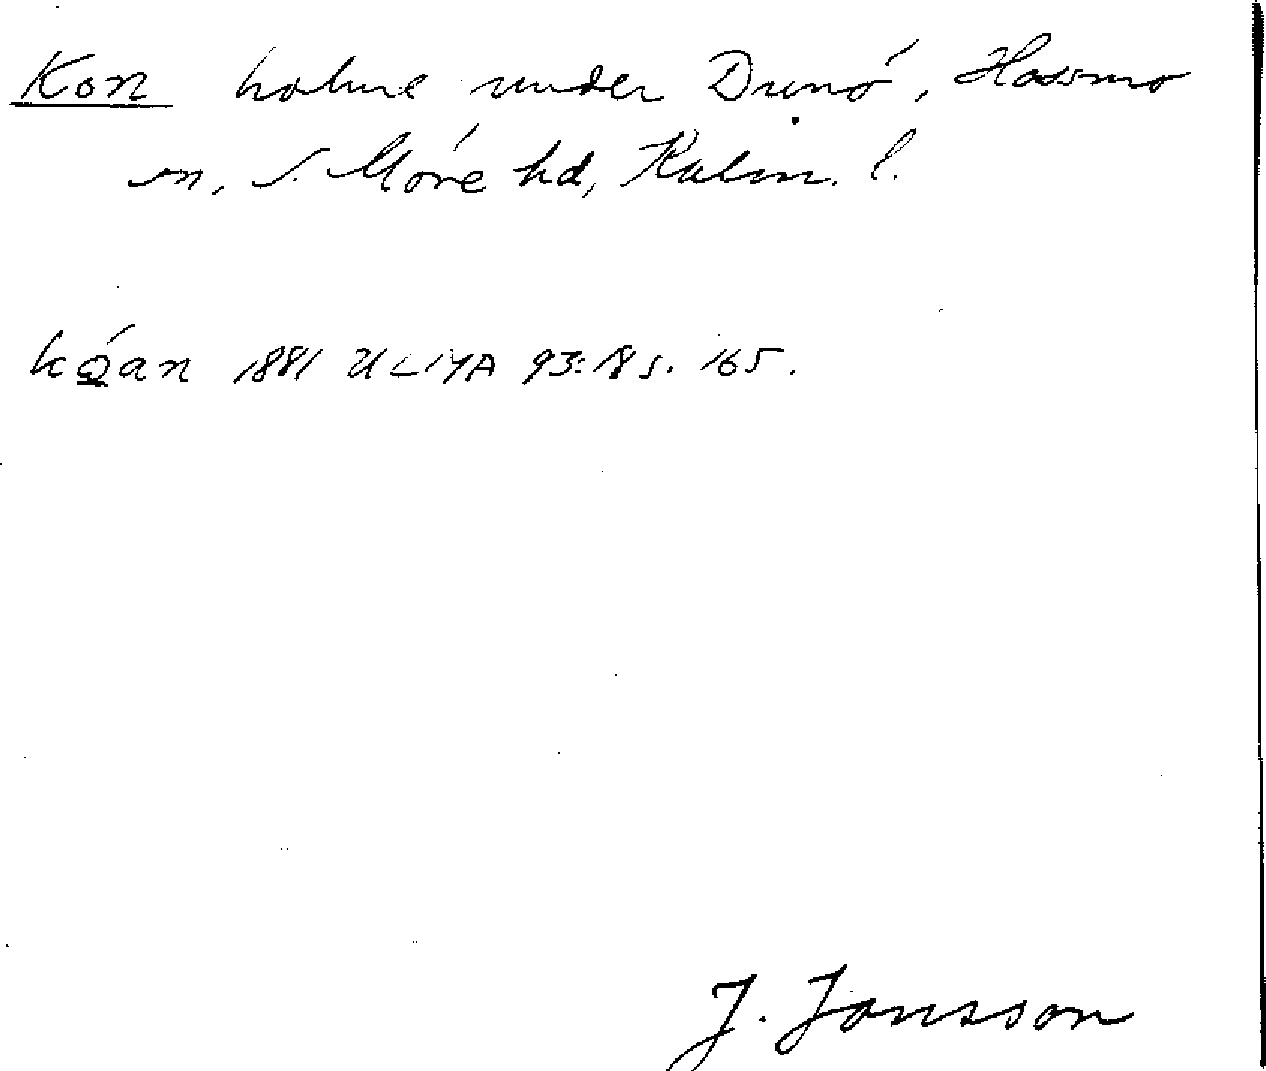 Kon holme under Dunö, Hossmo
sn, S. Möre hd, Kalm. l.
kǫ́an 1881 ULMA 93:18 s. 165.
J. Jonsson